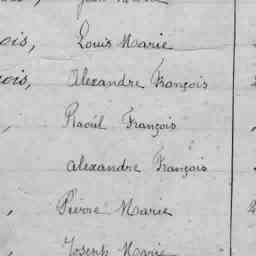 Jean Marie
ois, Louis Marie
ois, Alexandre François
, Raoul François
alexandre François
, Pierre Marie
, Joseph Marie